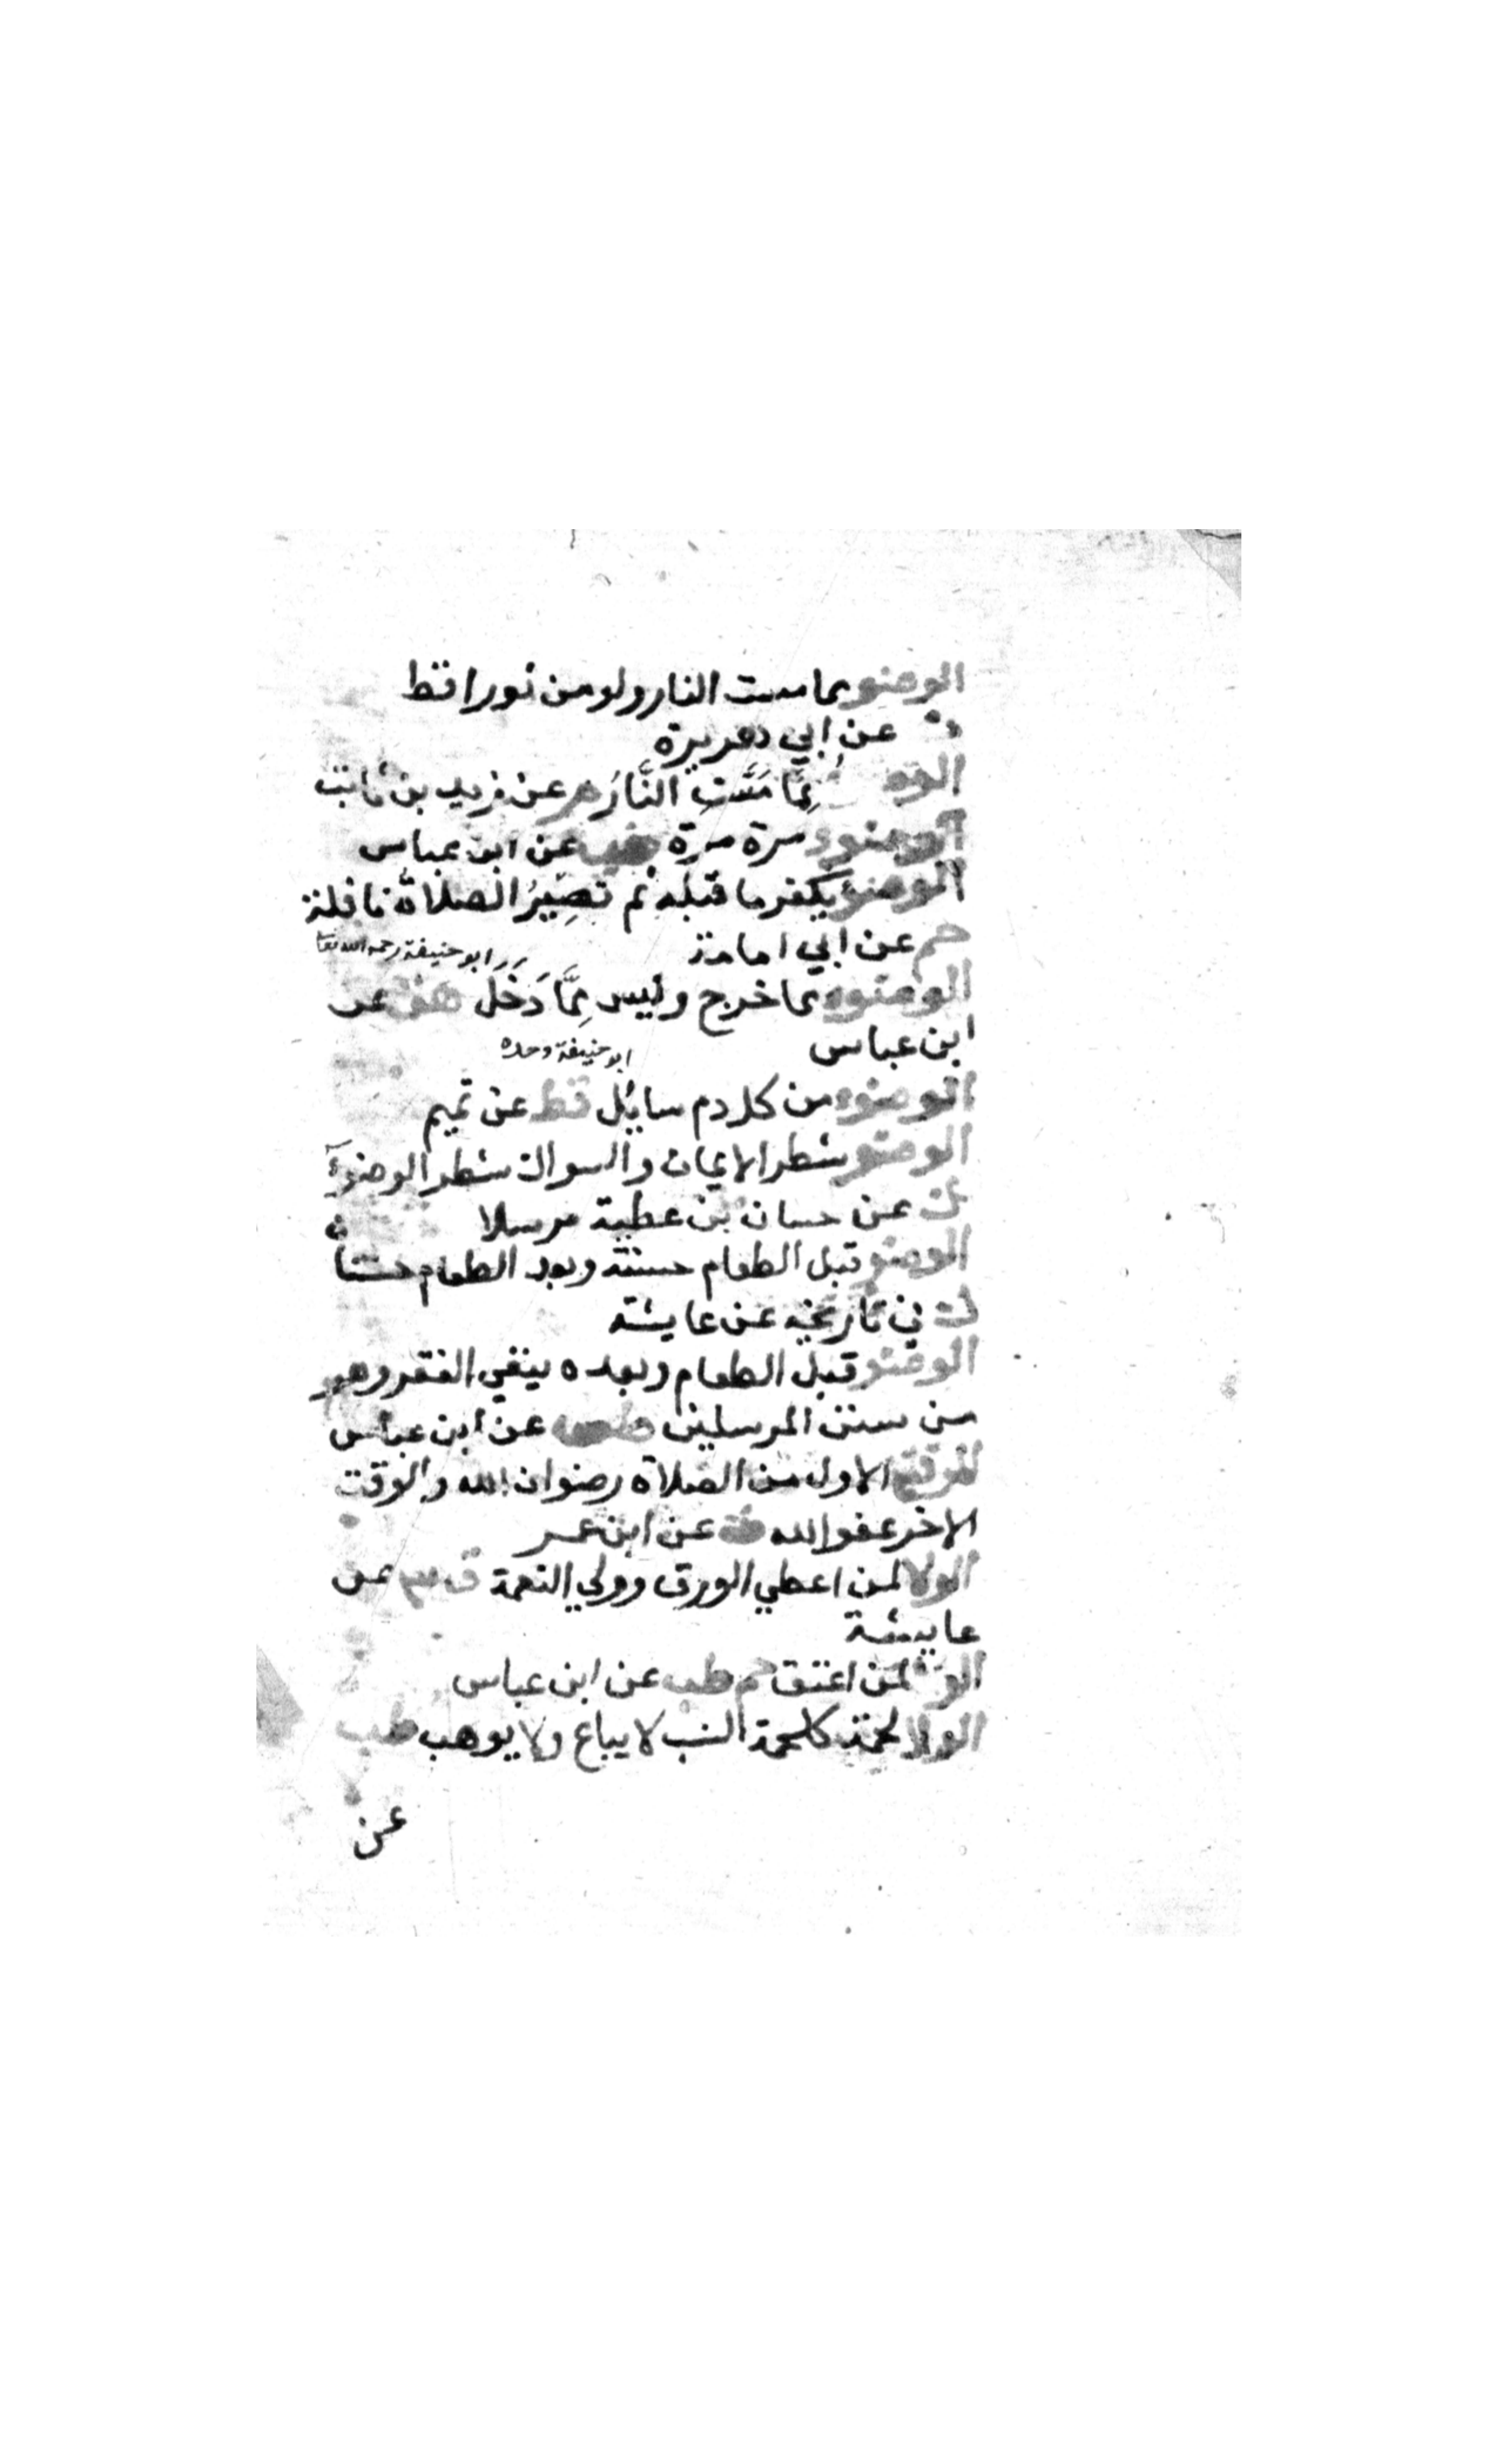 الوضو مما مست النار ولو من ثور اقط
ت عن ابي هريرة
الوضو مِمَّا مَسَّتِ النَّارُ م عن زيد بن ثابت
الوضوء مرة مرة طب عن ابن عباس
الوضو يكفر ما قبله ثم تصِيْرُ الصلاةُ نافلة
حم عن ابي امامة
ابو حنيفة رحمه الله تعا
الوضوء مما خرج وليس مِمَّا دَخَلَ هق عن
ابن عباس
ابو حنيفة وحده
الوضوء من كل دم سايل قط عن تميم
الوضو شطر الايمان والسواك شطر الوضوءِ
عن حسان بن عطية مرسلا
الوضو قبل الطعام حسنة وبعد الطعام حسنتا
ن
ك في تاريخه عن عايشة
الوضو قبل الطعام وبعده ينفي الفقر وهو
من سنن المرسلين طس عن ابن عباس
الوقت الاول من الصلاة رضوان الله والوقت
الاخر عفو الله ت عن ابن عمر
الولا لمن اعطي الورق وولي النعمة ق عن
عايشة
الولا لمن اعتق حم طب عن ابن عباس
الولا لحمة كلحمة النسب لا يباع ولا يوهب طب
عن